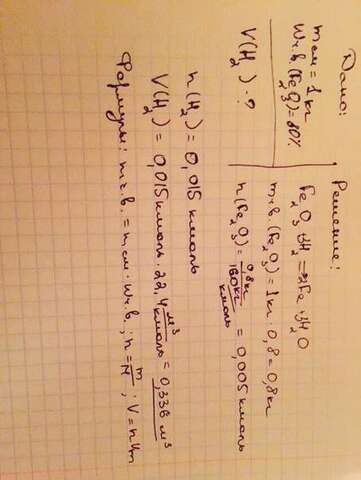 Дано:
mсм = 1 кг
Wч.в.(Fe₂O₃) = 80%
V(H₂) - ?
Решение:
Fe₂O₃ + 3H₂ = 2Fe + 3H₂O
mч.в.(Fe₂O₃) = 1кг · 0,8 = 0,8кг
n(Fe₂O₃) = 0,8кг / 160 кг/кмоль = 0,005 кмоль
n(H₂) = 0,015 кмоль
V(H₂) = 0,015 кмоль · 22,4 м³/кмоль = 0,336 м³
Формулы: mч.в. = mсм · Wч.в.; n = m/M; V = n·Vm